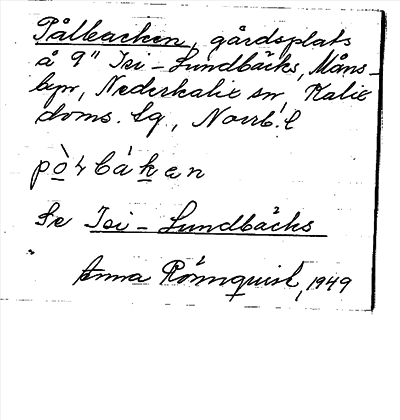 Pålbacken, gårdsplats
å 9" Isi-Lundbäcks, Måns-
byn, Nederkalix sn, Kalix
doms. lg., Norrb. l
pò̱ɽbáḵen
Se Isi-Lundbäcks
Anna Rönnquist, 1949